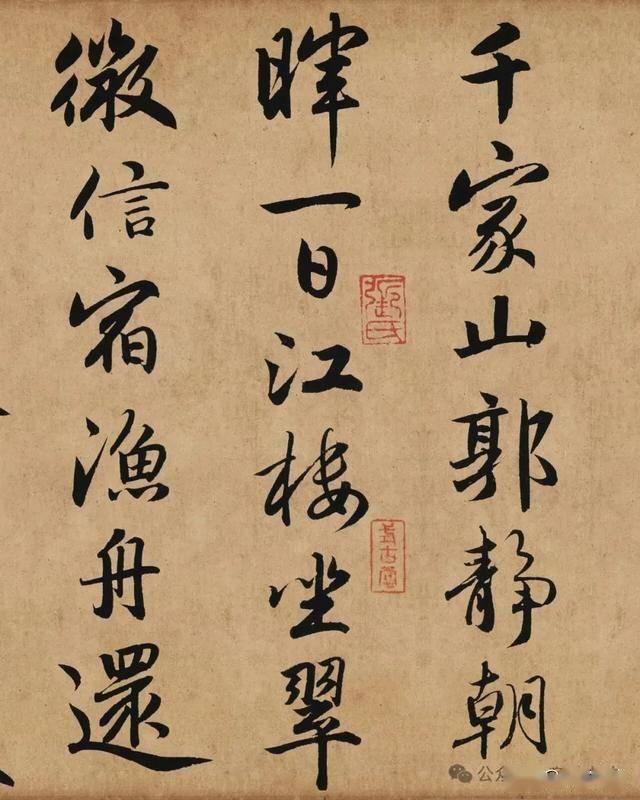 千家山郭静朝
暉一日江楼坐翠
微信宿渔舟還
公众